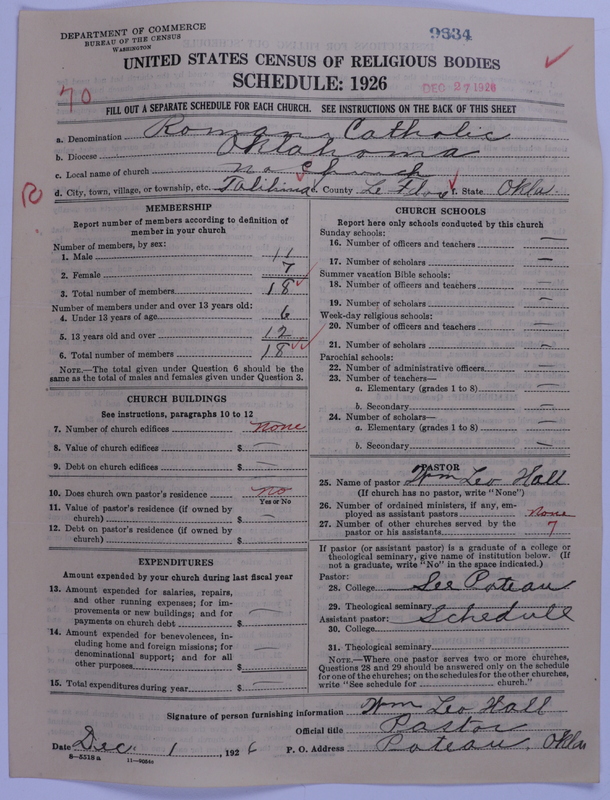 DEPARTMENT OF COMMERCE
BUREAU OF THE CENSUS
WASHINGTON
9834
UNITED STATES CENSUS OF RELIGIOUS BODIES
SCHEDULE: 1926
DEC 27 1926
70
FILL OUT A SEPARATE SCHEDULE FOR EACH CHURCH. SEE INSTRUCTIONS ON THE BACK OF THIS SHEET
a. Denomination Roman Catholic
b. Diocese Oklahoma
c. Local name of church no church
d. City, town, village, or township, etc. Talihina e. County Le Flore f. State Okla
MEMBERSHIP
Report number of members according to definition of member in your church
Number of members, by sex:
1. Male 11
2. Female 7
3. Total number of members 18
Number of members under and over 13 years old:
4. Under 13 years of age 6
5. 13 years old and over 12
6. Total number of members 18
NOTE.—The total given under Question 6 should be the same as the total of males and females given under Question 3.
CHURCH BUILDINGS
See instructions, paragraphs 10 to 12
7. Number of church edifices none
8. Value of church edifices $ —
9. Debt on church edifices $ —
10. Does church own pastor's residence no
Yes or No
11. Value of pastor's residence (if owned by church) $ —
12. Debt on pastor's residence (if owned by church) $ —
EXPENDITURES
Amount expended by your church during last fiscal year
13. Amount expended for salaries, repairs, and other running expenses; for improvements or new buildings; and for payments on church debt $ —
14. Amount expended for benevolences, including home and foreign missions; for denominational support; and for all other purposes $ —
15. Total expenditures during year $ —
CHURCH SCHOOLS
Report here only schools conducted by this church
Sunday schools:
16. Number of officers and teachers —
17. Number of scholars —
Summer vacation Bible schools:
18. Number of officers and teachers —
19. Number of scholars —
Week-day religious schools:
20. Number of officers and teachers —
21. Number of scholars —
Parochial schools:
22. Number of administrative officers —
23. Number of teachers—
a. Elementary (grades 1 to 8) —
b. Secondary —
24. Number of scholars—
a. Elementary (grades 1 to 8) —
b. Secondary —
PASTOR
25. Name of pastor Wm Leo Hall
(If church has no pastor, write "None")
26. Number of ordained ministers, if any, employed as assistant pastors none
27. Number of other churches served by the pastor or his assistants 7
If pastor (or assistant pastor) is a graduate of a college or theological seminary, give name of institution below. (If not a graduate, write "No" in the space indicated.)
Pastor:
28. College See Poteau
29. Theological seminary Schedule
Assistant pastor:
30. College
31. Theological seminary
NOTE.—Where one pastor serves two or more churches, Questions 28 and 29 should be answered only on the schedule for one of the churches; on the schedules for the other churches, write "See schedule for ........ church."
Signature of person furnishing information Wm Leo Hall
Official title Pastor
Date Dec 1, 1926 P. O. Address Poteau, Okla
8—5518 a